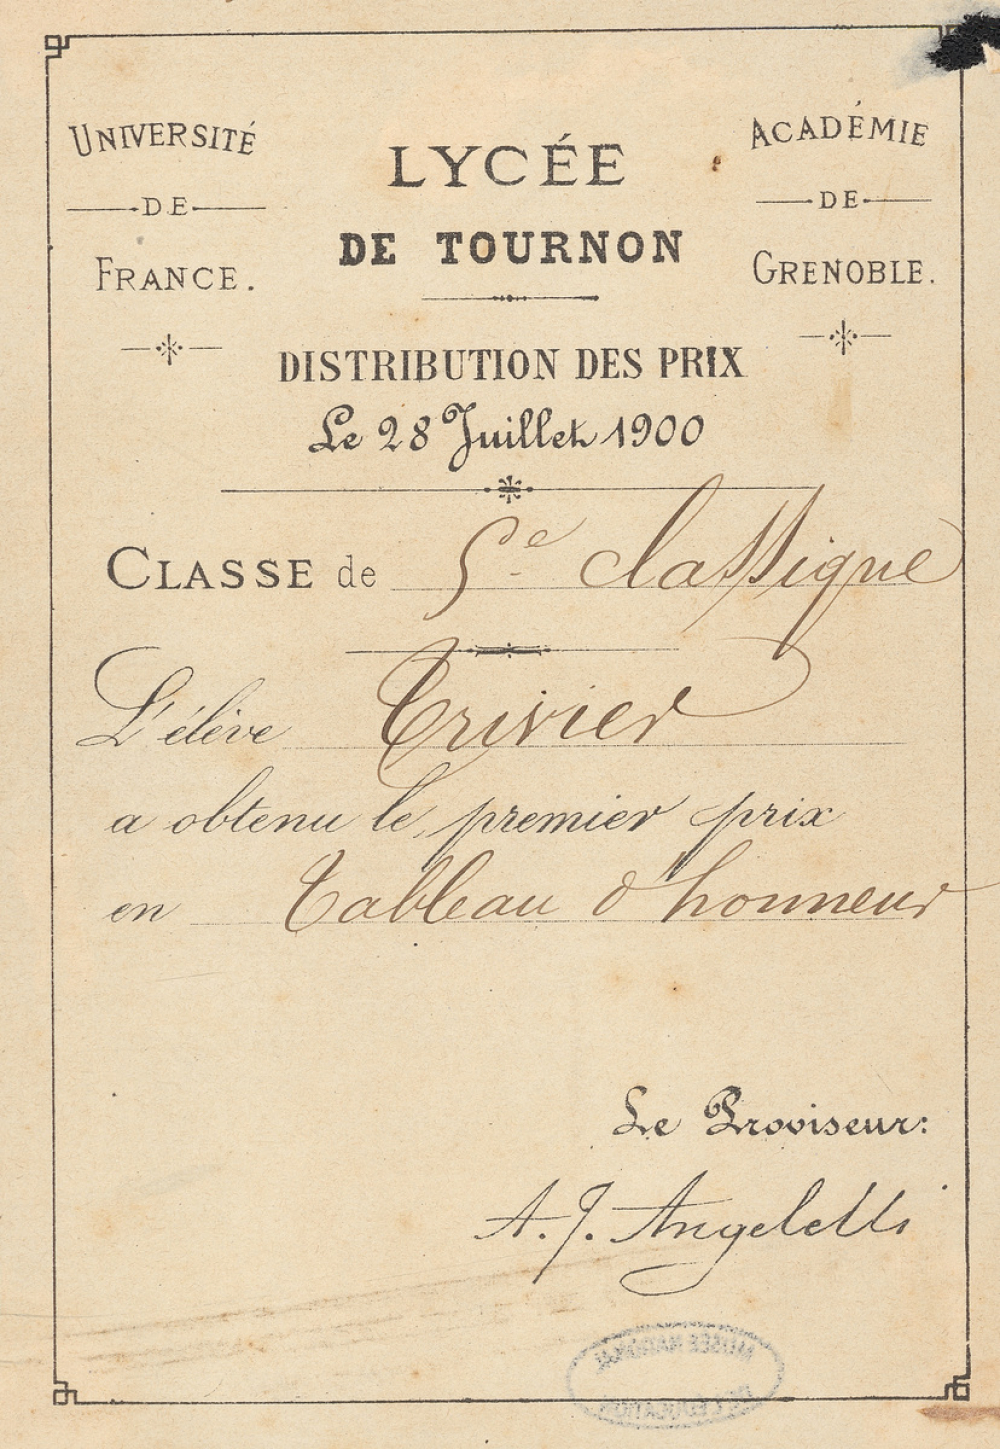 UNIVERSITÉ
DE
FRANCE.
LYCÉE
DE TOURNON
ACADÉMIE
DE
GRENOBLE.
DISTRIBUTION DES PRIX
Le 28 Juillet 1900
CLASSE de 5e classique
L'élève Trivier
a obtenu le premier prix
en Tableau d'honneur
Le Proviseur:
A. J. Angeletti
MUSÉE NATIONAL
DE L'ÉDUCATION